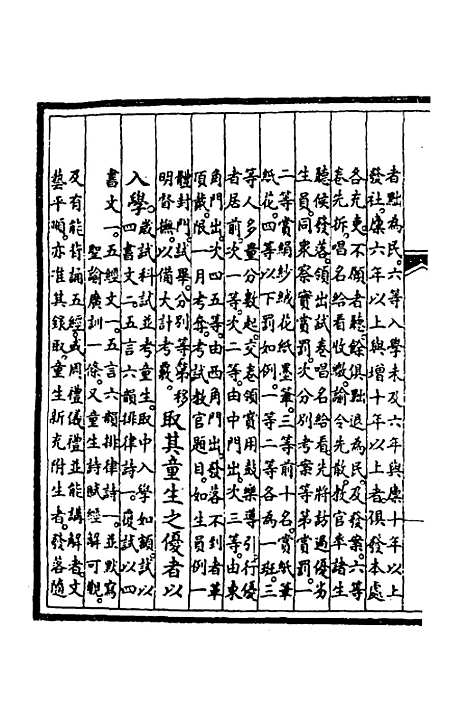 者黜為民。六等入學未及六年與廩十年以上
發社。廩六年以上與增十年以上者俱發本處
各充吏。不願者聽。餘俱黜退為民。及發案。六等
卷先拆。唱名給看收繳。諭令先散。教官率諸生
聽候發落。領出試卷唱名給看。先將訪過優劣
生員。同衆察實賞罰。次分別考案等第賞罰。一
二等賞絹紗絨花紙墨筆。三等前十名。賞紙筆
紙花。四等以下罰如例。一等二等各為一班。三
等人多。量分數起。交卷領賞。用鼓樂導引。行優
者居前。次一等。次二等。由中門出。次三等。由東
角門出。次四等五等。由西角門出。發落不到者革
項裁限一月考奪。考試教官題目。如生員例。一
體封門。試畢。分别等第。移
明督撫。以備大計考覈。取其童生之優者以
入學。歲試科試並考童生。取中入學如額。試以
四書文一。五言六韻排律詩一。覆試以四
書文一。五經文一。五言六韻排律詩一。並默寫
聖諭廣訓一條。又童生詩賦經解可觀。
及有能背誦五經。或周禮儀禮。並能講解者。文
藝平順。亦准其錄取。童生新充附生者。發落隨